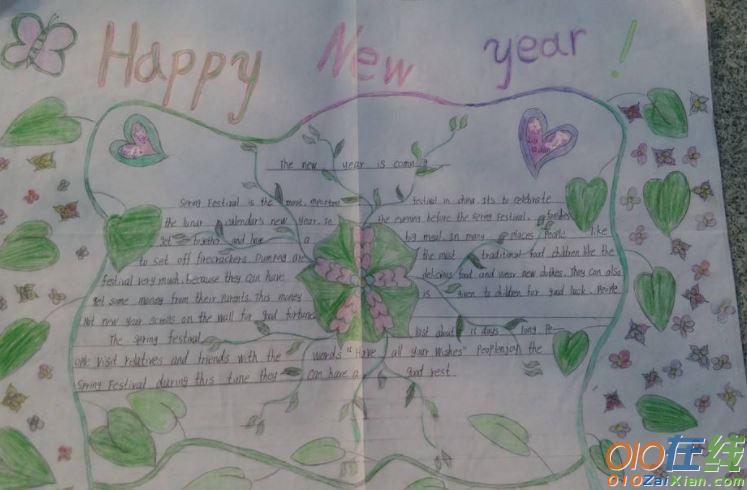 Happy New year !
The new year is coming
Spring Festival is the most important festival in china. It's to celebrate
the lunar calendar's new year. In the evening before the Spring Festival, families
get together and have a big meal. In many places People like
to set off firecrackers. Dumping are the most traditional food children like the
festival very much, because they can have delicious food and wear new clothes. They can also
get some money from their parents. This money is given to children for good luck. People
new year scrolls on the wall for good fortune
The Spring festival last about 15 days long Pe
ople visit relatives and friends with the words "Have all your wishes" People enjoy the
Spring Festival during this time they can have a good rest.
010在线
010ZaiXian.com